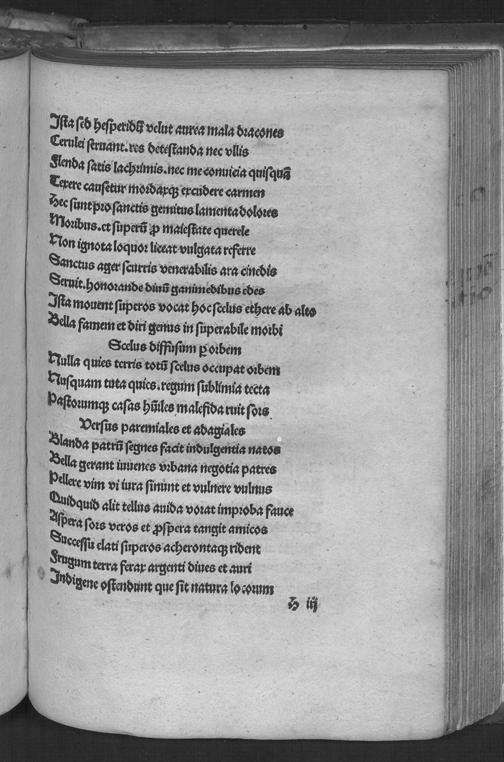 Ista sed hesperidū velut aurea mala dracones
Cerulei seruant. res detestanda nec vllis
Flenda satis lachrimis. nec me conuicia quisquā
Texere causetur mordaxqꝫ excudere carmen
Hec sunt pro sanctis gemitus lamenta dolores
Moribus. et superū ꝓ maiestate querele
Non ignota loquor liceat vulgata referre
Sanctus ager scurris venerabilis ara cinedis
Seruit. honorande diuū ganimedibus edes
Ista mouent superos vocat hoc scelus ethere ab alto
Bella famem et diri genus in superabile morbi
Scelus diffusum ꝑ orbem
Nulla quies terris totū scelus occupat orbem
Nusquam tuta quies. regum sublimia tecta
Pastorumqꝫ casas hūiles malefida ruit sors
Versus paremiales et adagiales
Blanda patrū segnes facit indulgentia natos
Bella gerant iuuenes vrbana negotia patres
Pellere vim vi iura sinunt et vulnere vulnus
Quidquid alit tellus auida vorat improba fauce
Aspera sors veros et ꝓspera tangit amicos
Successu elati superos acherontaqꝫ rident
Frugum terra ferax argenti diues et auri
Indigene ostendunt que sit natura locorum
H iij